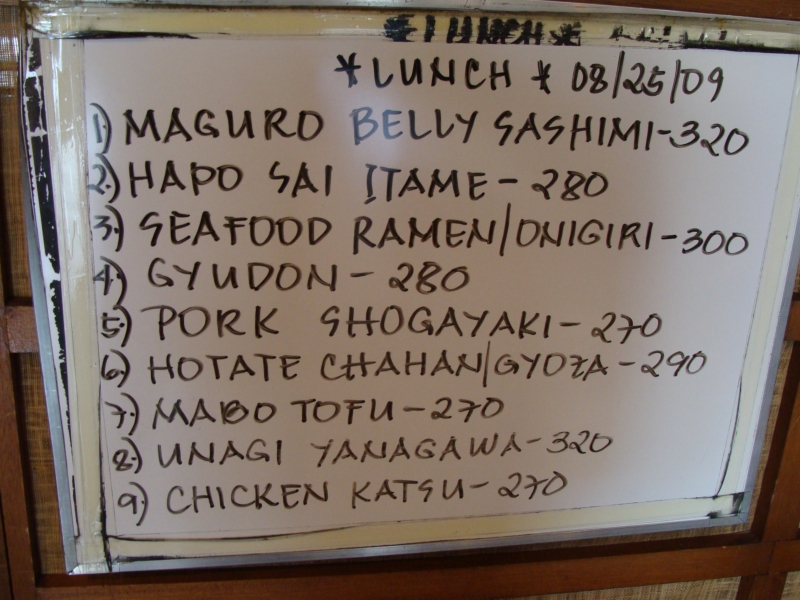 *LUNCH*
*LUNCH * 08/25/09
1) MAGURO BELLY SASHIMI-320
2.) HAPO SAI ITAME - 280
3.) SEAFOOD RAMEN/ONIGIRI - 300
4.) GYUDON - 280
5.) PORK SHOGAYAKI - 270
6.) HOTATE CHAHAN/GYOZA - 290
7.) MABO TOFU - 270
8.) UNAGI YANAGAWA - 320
9) CHICKEN KATSU - 270